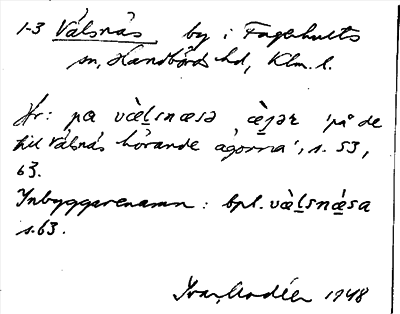 1-3 Välsnäs by i Fagerhults
sn, Handbörds hd, Klm. l.
Hr: pα væ̀l̠snæsə æ̀jər 'på de
till Välsnäs hörande ägorna', s. 53,
63.
Inbyggarenamn: bpl. væ̀l̠snæ̠sa
s. 63.
Ivar Modéer 1948